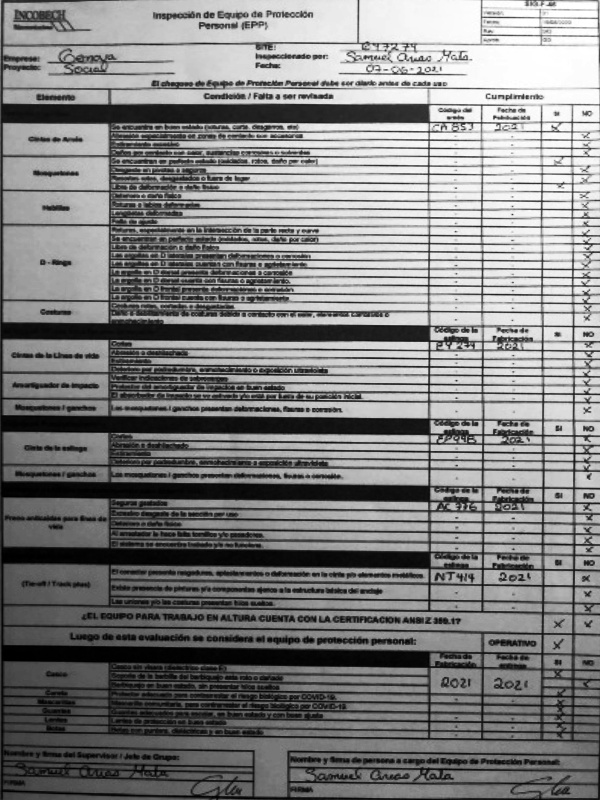 INCOBECH
Inspección de Equipo de Protección
Personal (EPP)
Empresa: Genova
Proyecto: Social
SITE:
Inspeccionado por: Samuel Arias Mata
Fecha: 07-06-2021
El chequeo de Equipo de Protección Personal debe ser diario antes de cada uso
Elemento Condición / Falta a ser revisada Cumplimiento
Código del arnés Fecha de Fabricación SI NO
Cintas de Arnés
Se encuentra en buen estado (roturas, corte, desgarros, etc) CA 853 2021 X
Abrasión especialmente en zonas de contacto con accesorios X
Estiramiento excesivo X
Daños por contacto con calor, sustancias corrosivas o solventes X
Mosquetones
Se encuentran en perfecto estado (oxidados, rotos, daño por calor) X
Desgaste en pivotes o seguros X
Resortes rotos, desgastados o fuera de lugar X
Libre de deformación o daño físico X
Hebillas
Deterioro o daño físico X
Lengüetas deformadas X
Falta de ajuste X
D - Rings
Roturas, especialmente en la intersección de la parte recta y curva X
Se encuentran en perfecto estado (doblados, rotos, daño por calor) X
Libre de deformación o daño físico X
Las argollas en D laterales presentan deformaciones o corrosión X
Las argollas en D laterales cuentan con fisuras o agrietamiento X
La argolla en D dorsal presenta deformaciones o corrosión X
La argolla en D dorsal cuenta con fisuras o agrietamiento. X
La argolla en D frontal presenta deformaciones o corrosión X
La argolla en D frontal cuenta con fisuras o agrietamiento X
Costuras
Costuras rotas, cortadas o desgastadas X
Código de la eslinga Fecha de Fabricación SI NO
Cintas de la Línea de vida
Cortes 2021 X
Abrasión o deshilachado X
Estiramiento X
Deterioro por podredumbre, enmohecimiento o exposición ultravioleta X
Amortiguador de impacto
Verificar indicaciones de sobrecargas X
Protector del amortiguador de impactos en buen estado X
El absorbedor de impacto se ve activado y/o está por fuera de su posición inicial. X
Mosquetones / ganchos
Los mosquetones / ganchos presentan deformaciones, fisuras o corrosión. X
Código de la eslinga Fecha de Fabricación SI NO
Cinta de la eslinga
Cortes 2021 X
Abrasión o deshilachado X
Estiramiento X
Deterioro por podredumbre, enmohecimiento o exposición ultravioleta X
Mosquetones / ganchos
Los mosquetones / ganchos presentan deformaciones, fisuras o corrosión. X
Código de la eslinga Fecha de Fabricación SI NO
Freno anticaídas para línea de vida
Seguros gastados AC 776 2021 X
Excesivo desgaste de la sección por uso X
Deterioro o daño físico X
El sistema se encuentra trabado y/o no funciona. X
Código de la eslinga Fecha de Fabricación SI NO
El conector presenta rasgaduras, aplastamientos o deformación en la cinta y/o elementos metálicos. NT414 2021 X
Existe presencia de pinturas y/o componentes ajenos a la estructura básica del anclaje X
Las uniones y/o las costuras presentan hilos sueltos. X
¿EL EQUIPO PARA TRABAJO EN ALTURA CUENTA CON LA CERTIFICACION ANSI Z 359.1? X X
Luego de esta evaluación se considera el equipo de protección personal: OPERATIVO X
Fecha de Fabricación SI NO
Casco
Casco sin visera (dieléctrico clase E) 2021 2021 X
Soporte de la barbilla del barbiquejo esta roto o dañado
Barbiquejo en buen estado, sin presentar hilos sueltos
Careta
Protector adecuado para contrarrestar el riesgo biológico por COVID-19. X
Mascarillas
Mascarilla comunitaria, para contrarrestar el riesgo biológico por COVID-19. X
Guantes
Guantes adecuados para escalar, en buen estado y con buen ajuste X
Lentes
Lentes de protección en buen estado X
Botas
Botas con puntera, dieléctricas y en buen estado X
Nombre y firma del Supervisor / Jefe de Grupo:
Samuel Arias Mata
FIRMA
Nombre y firma de persona a cargo del Equipo de Protección Personal:
Samuel Arias Mata
FIRMA